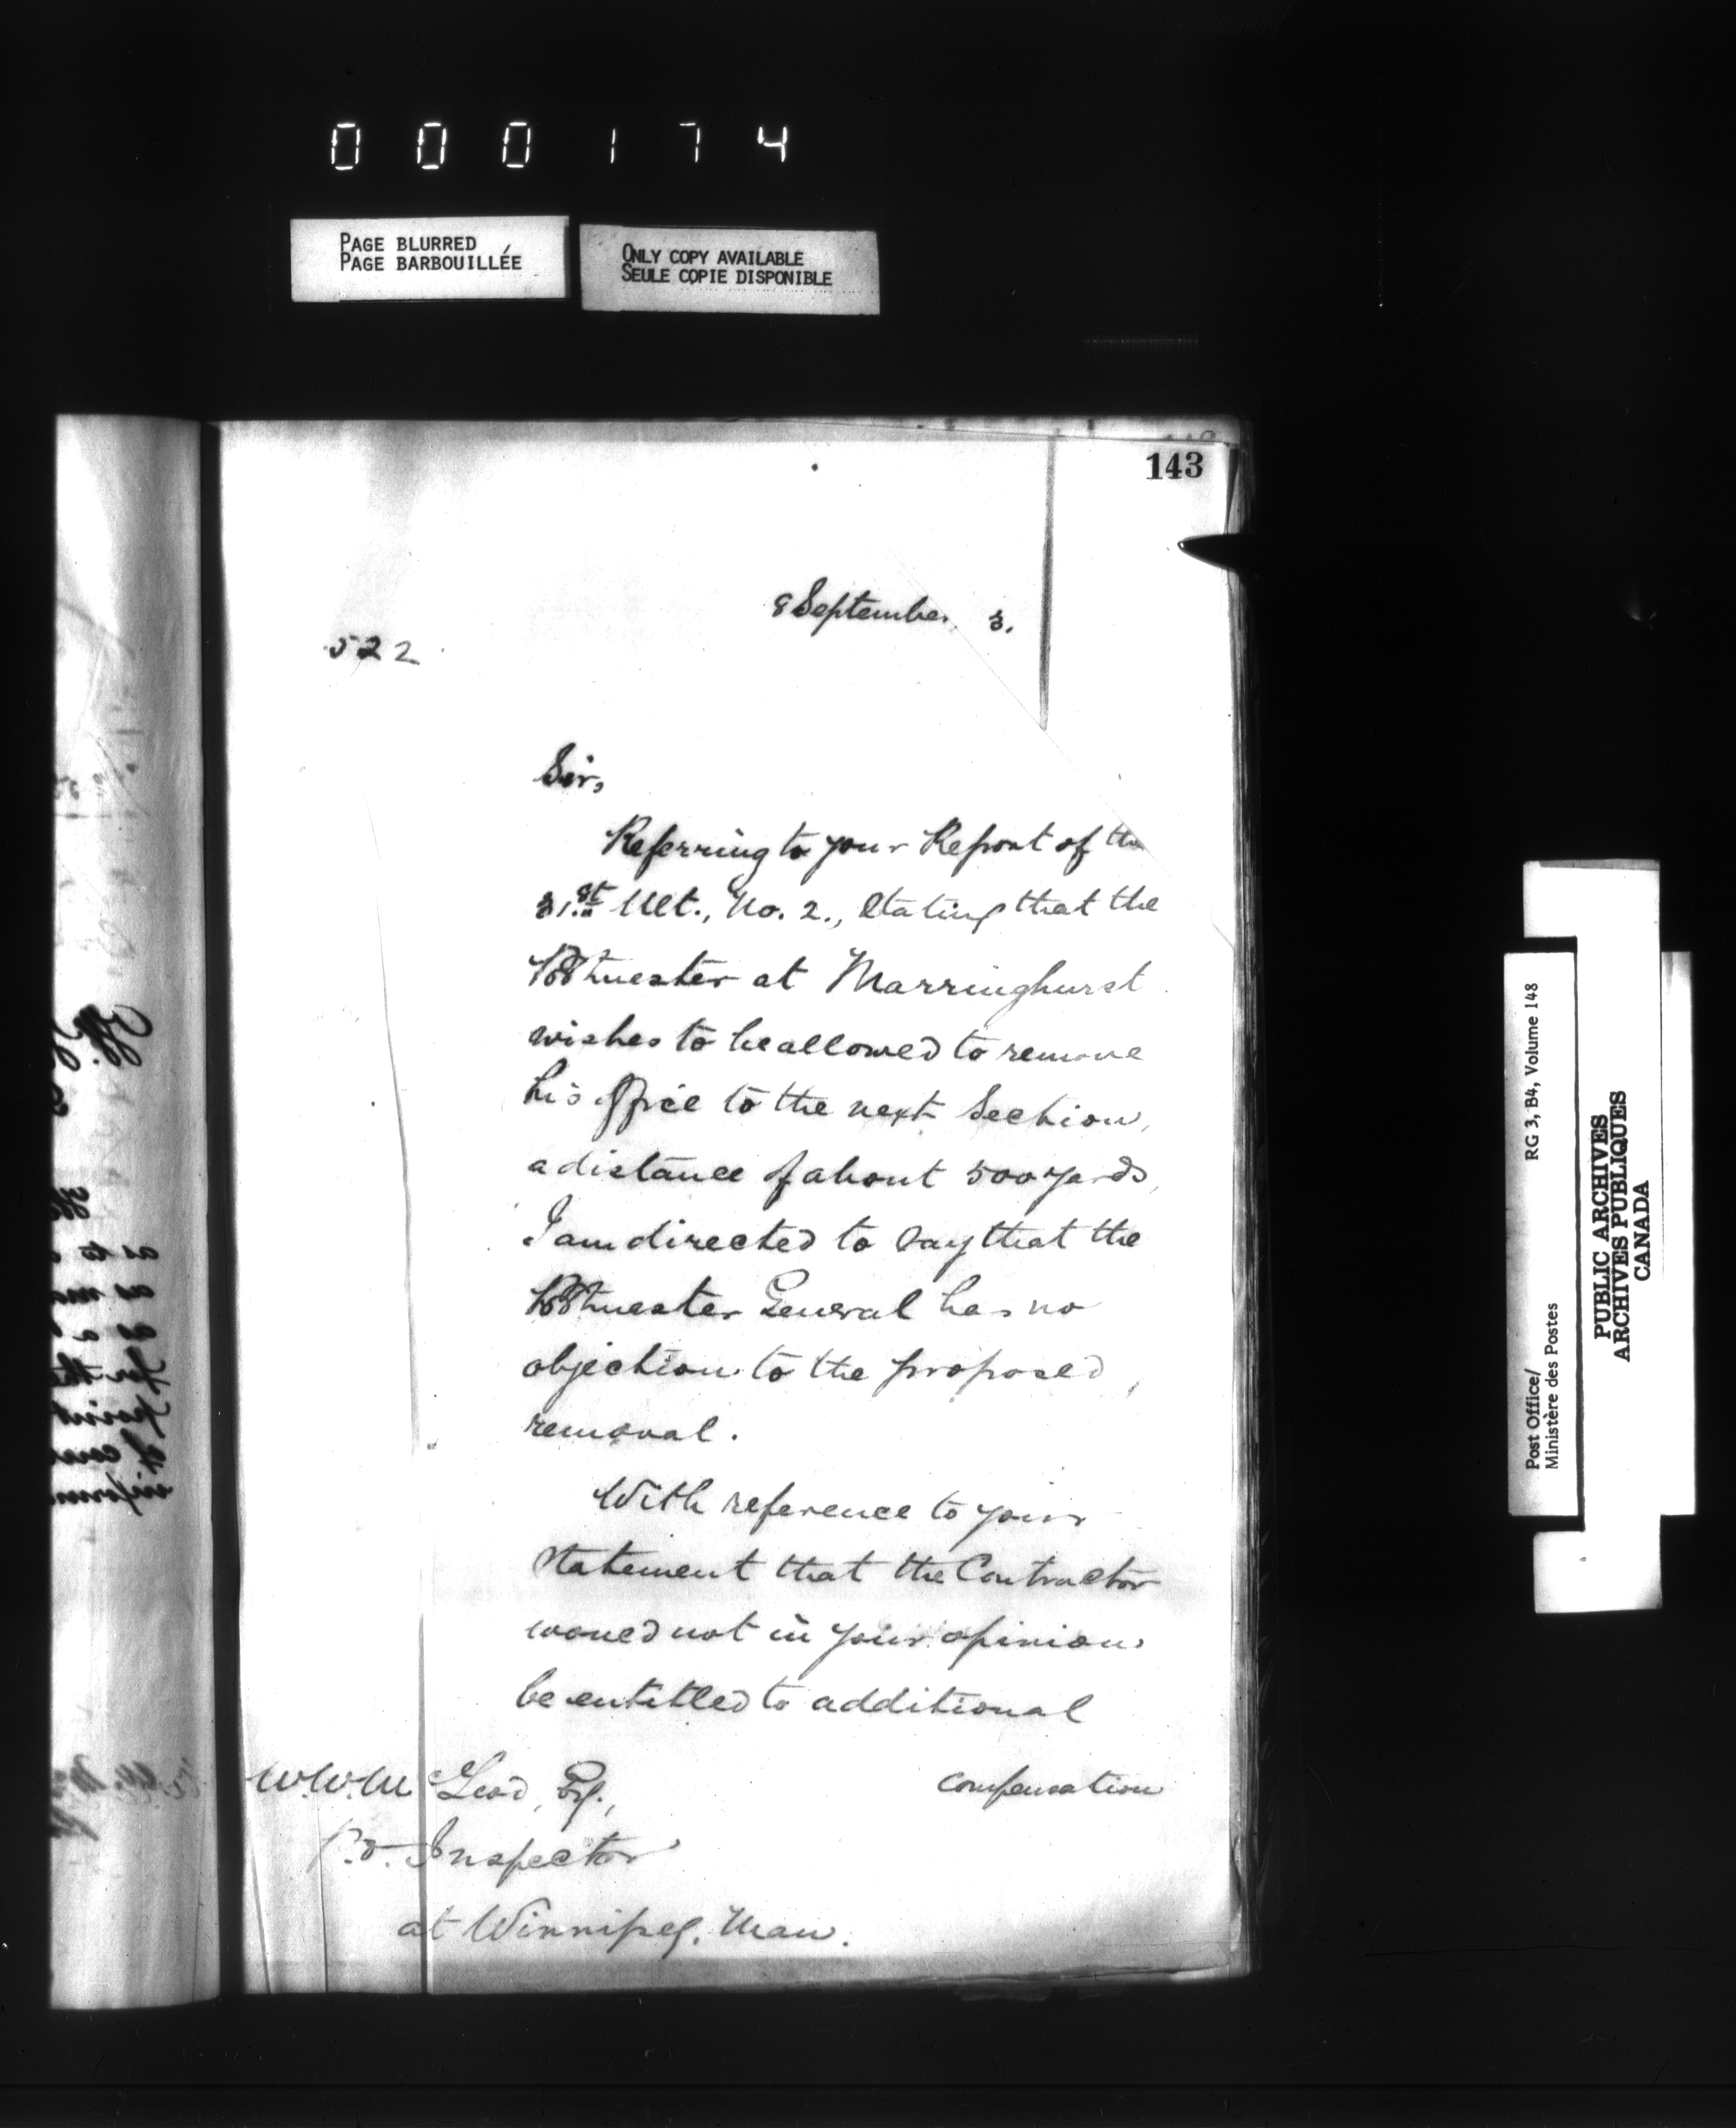 000174
PAGE BLURRED
PAGE BARBOUILLÉE
ONLY COPY AVAILABLE
SEULE COPIE DISPONIBLE
143
8 September 3.
522
Sir,
Referring to your Report of the
31.st Ult., No. 2., stating that the
Postmaster at Marringhurst
wishes to be allowed to remove
his office to the next Section,
a distance of about 500 yards,
I am directed to say that the
Postmaster General has no
objection to the proposed
removal.
With reference to your
statement that the Contractor
would not in your opinion
be entitled to additional
compensation
W.W. McLeod, Esq.,
P.O. Inspector
at Winnipeg. Man.
Post Office/
Ministère des Postes
RG 3, B4, Volume 148
PUBLIC ARCHIVES
ARCHIVES PUBLIQUES
CANADA